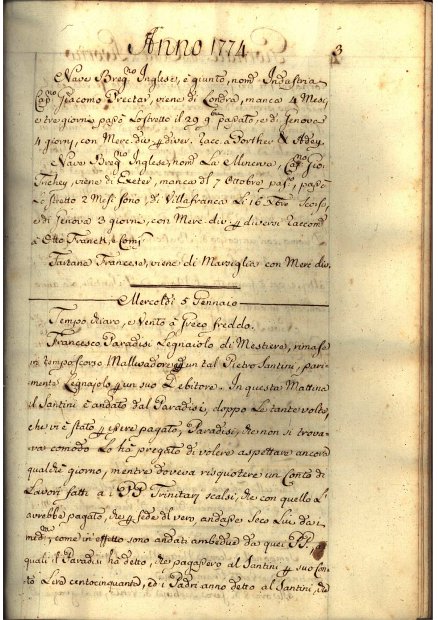 Anno 1774
3
Nave Breg.no Inglese, è giunto, nom.a Industria
Cap.no Giacomo Prectar, viene di Londra, manca 4 Mesi,
e tre giorni, passò lo stretto il 29 9bre passato, e di Genova
4 giorni, con Merc. div. diver. racc. a Porther & Adey.
Nave Breg.no Inglese, nom.a La Minerva, Cap.no Gio:
Trehey, viene di Exeter, manca dl 7 Ottobre pas.o, passò
Lo stretto 2 Mesi sono, di Villafranca Li 16 Xbre scorso,
e di Genova 3 giorni, con Merc. div. p diversi raccom.
a Otto Franck, e Comi.
Tartana Francese, viene di Marsiglia con Merc. div.
Mercoldì 5 Gennaio
Tempo chiaro, e Vento à Greco freddo.
Francesco Paradisi Legnaiolo di Mestiero, rimase
in tempo scorso Mallevadore d un tal Pietro Santini, pari-
mente Legnajolo p un suo Debitore. In questa Mattina
il Santini è andato dal Paradisi, doppo Le tante volte,
che vi è stato p essere pagato, Paradisi, che non si trova-
va comodo Lo hà pregato di volere aspettare ancora
qualche giorno, mentre doveva risquotere un Conto di
Lavori fatti a i PP. Trinitarj scalsi, che con quello L'
avrebbe pagato, che p fede dl vero, andasse seco Lui da i
med.mi, come in effetto sono andati ambedue da quei PP.
quali il Paradisi ha detto, che pagassero al Santini p suo Con-
to Lire centocinquanta, ed i Padri anno detto al Santini, che